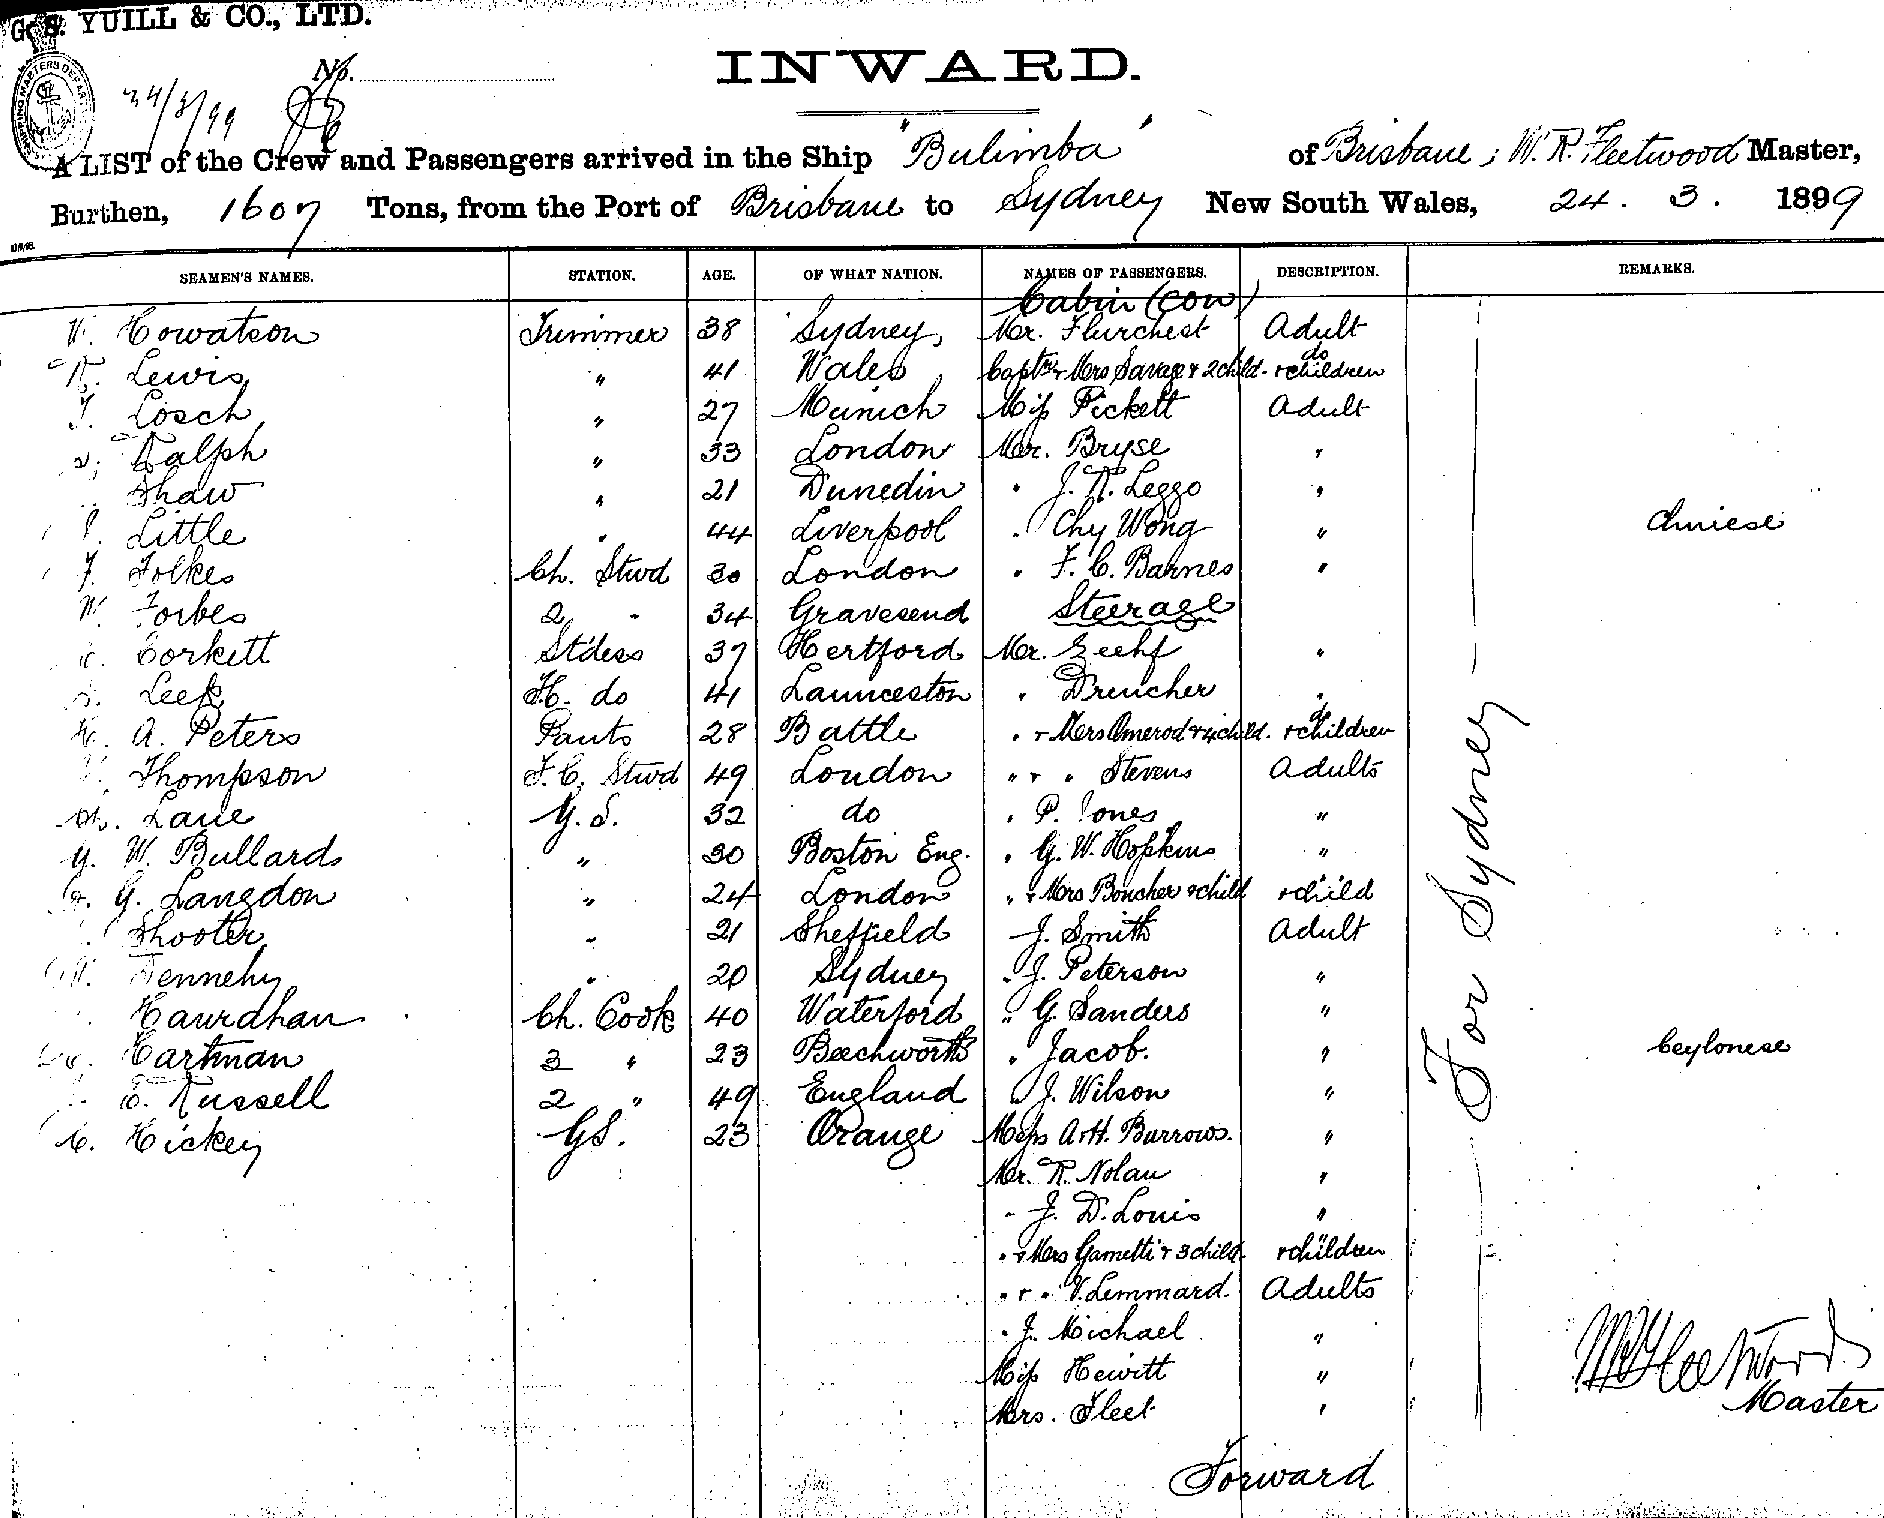 G. S. YUILL & CO., LTD.
No.
INWARD.
24/3/99
A LIST of the Crew and Passengers arrived in the Ship "Bulimba" of Brisbane; W. R. Fleetwood Master,
Burthen, 1607 Tons, from the Port of Brisbane to Sydney New South Wales, 24. 3. 1899
SEAMEN'S NAMES. STATION. AGE. OF WHAT NATION. NAMES OF PASSENGERS. DESCRIPTION. REMARKS.
Cabin (con)
Howatson Trimmer 38 Sydney, Mr. Flurchest Adult
R. Lewis " 41 Wales Captn + Mrs Savage + 2 child - do + children
Losch " 27 Munich Miss Pickett Adult
Ralph " 33 London Mr. Bryse "
Shaw " 21 Dunedin " J. R. Leggo "
Little " 44 Liverpool " Chy Wong " Chniese
J. Folkes Ch. Stwd 30 London " F. C. Barnes "
W. Forbes 2 " 34 Gravesend Steerage
Corkett St'dess 37 Hertford Mr. "
Leek F.C. do 41 Launceston " Drencher "
H. A. Peters Pants 28 Battle " + Mrs Omerod + 4 child. do + children
Thompson F.C. Stwd 49 London " + " Stevens Adults
Ch. Lane G.S. 32 do " P. Jones "
G. W. Bullards " 30 Boston Eng. " G. W. Hopkins "
G. Langdon " 24 London " + Mrs Boucher + child " + child
Shooter " 21 Sheffield " J. Smith Adult
Fennehy " 20 Sydney " J. Peterson "
Haurdhan Ch. Cook 40 Waterford " G. Sanders "
Hartman 3 " 23 Beechworth " Jacob. " Ceylonese
E. Russell 2 " 49 England " J. Wilson "
C. Hickey GS. 23 Orange Miss A & H. Burrows. "
Mr. R. Nolan "
" J. D. Louis "
" + Mrs Gametti + 3 child. " + children
" + " V. Lemmard. Adults
" J. Michael "
Miss Hewitt "
Mrs. Fleet "
For Sydney
W R Fleetwood
Master
Forward